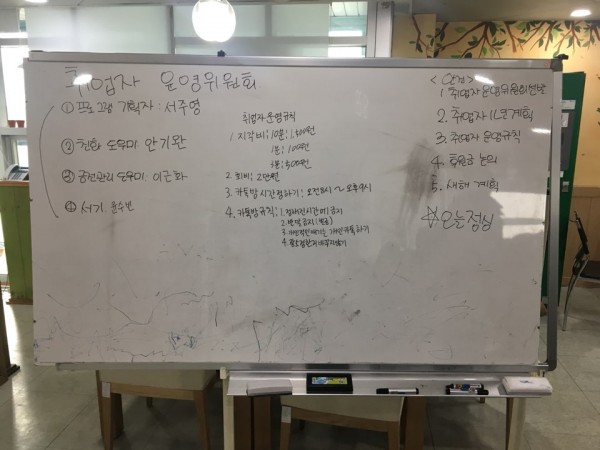 취업자 운영위원회
① 프로그램 기획자 : 서주영
② 전화 도우미 안기완
③ 금전관리 도우미 이근화
④ 서기 윤수빈
취업자 운영규칙
1. 지각비; 10분: 1,500원
1분: 100원
3분: 500원
2. 회비; 2만원
3. 카톡방시간정하기; 오전8시 ~ 오후9시
4. 카톡방규칙; 1. 정해진시간에 금지
2. 반복 금지
3. 개인적인얘기는 개인카톡하기
<안건>
1. 취업자운영위원회선발
2. 취업자 1년계획
3. 취업자 운영규칙
4. 논의
5. 새해 계획
☆오늘점심